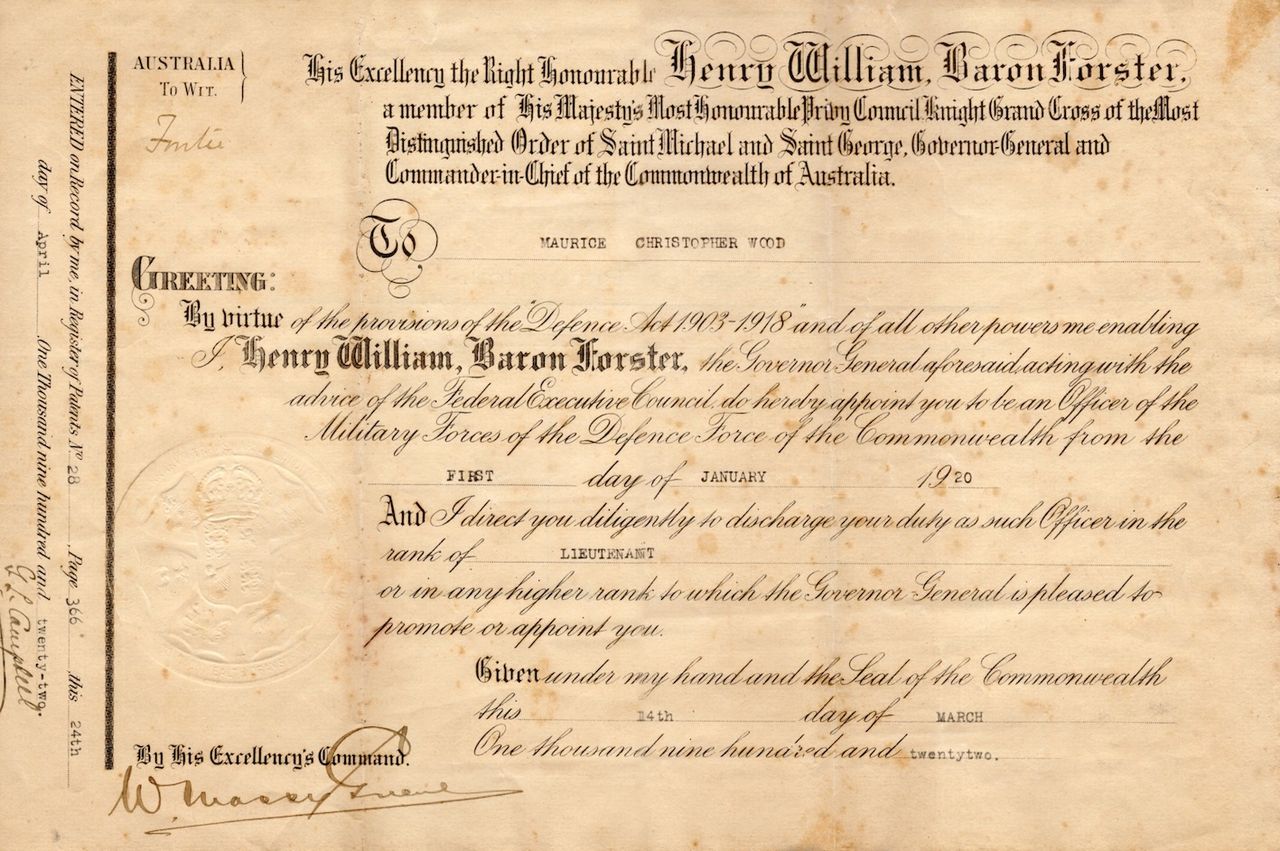 AUSTRALIA
TO WIT.
Forster
His Excellency the Right Honourable Henry William, Baron Forster,
a member of His Majesty's Most Honourable Privy Council Knight Grand Cross of the Most
Distinguished Order of Saint Michael and Saint George, Governor-General and
Commander-in-Chief of the Commonwealth of Australia.
To MAURICE CHRISTOPHER WOOD
GREETING:
By virtue of the provisions of the "Defence Act 1903-1918" and of all other powers me enabling
I, Henry William, Baron Forster, the Governor General aforesaid, acting with the
advice of the Federal Executive Council, do hereby appoint you to be an Officer of the
Military Forces of the Defence Force of the Commonwealth from the
FIRST day of JANUARY 1920
And I direct you diligently to discharge your duty as such Officer in the
rank of LIEUTENANT
or in any higher rank to which the Governor General is pleased to
promote or appoint you.
Given under my hand and the Seal of the Commonwealth
this 14th day of MARCH
One thousand nine hundred and twentytwo.
By His Excellency's Command.
W. Massy Greene
ENTERED on Record by me, in Register of Patents No 28 Page 366 this 24th
day of April One Thousand nine hundred and twenty-two.
G. L. Campbell